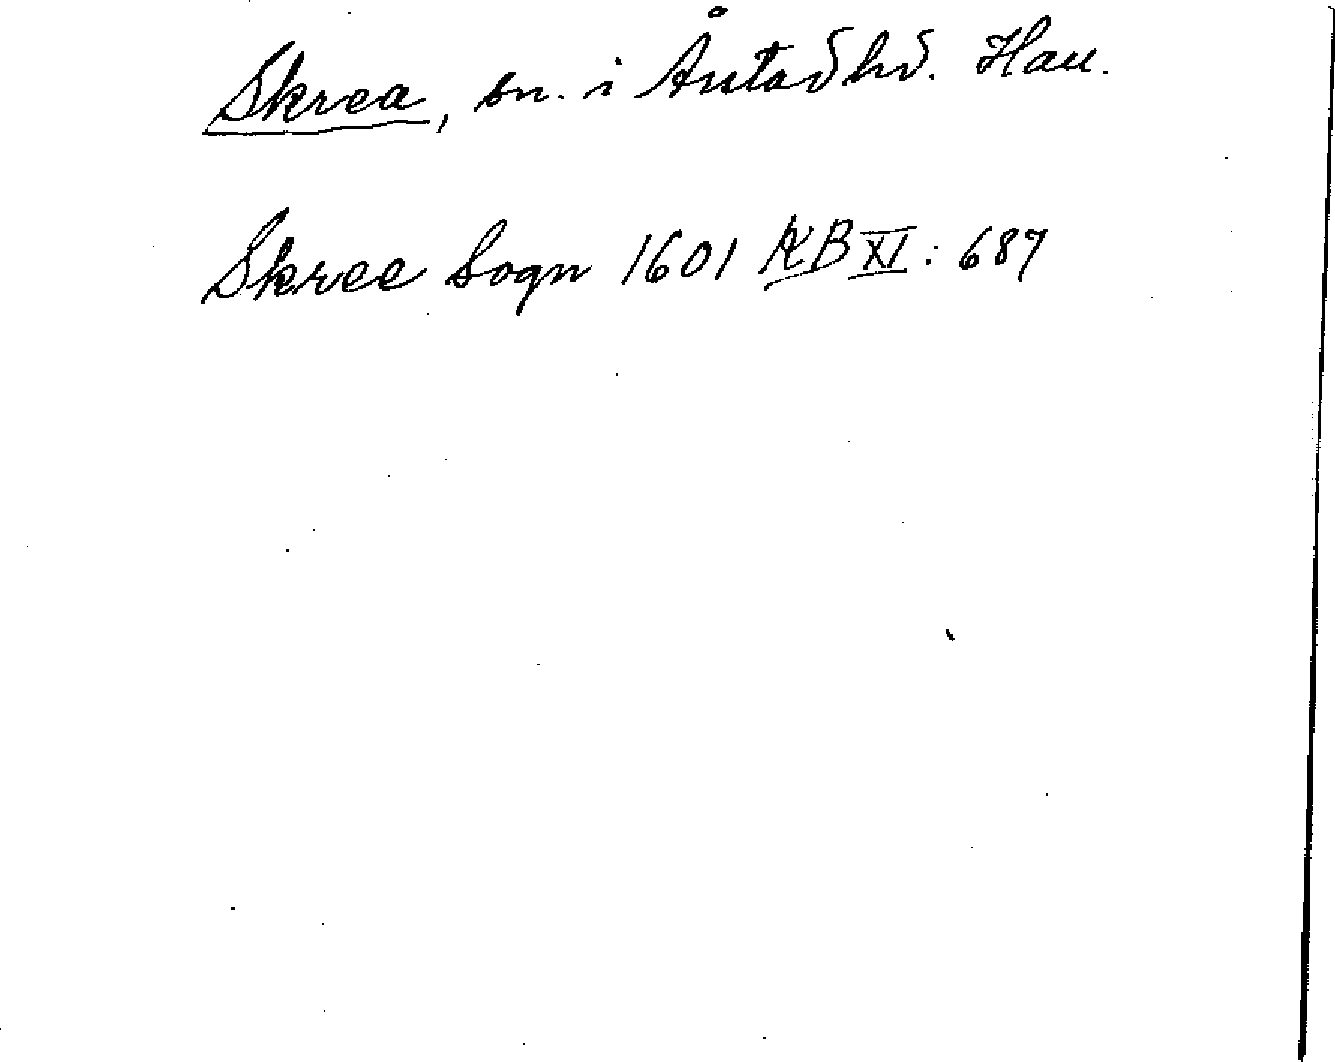 Skrea, sn. i Årstad hd. Hall.
Skree Sogn 1601 KB XI: 687